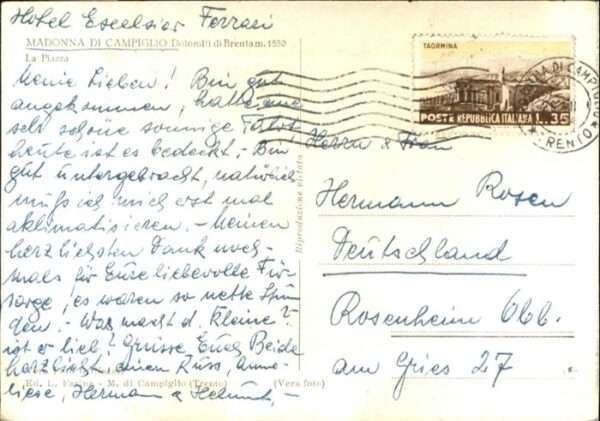 Hotel Excelsior Ferrari
MADONNA DI CAMPIGLIO Dolomiti di Brenta m. 1550
La Piazza
Meine Lieben! Bin gut
angekommen, hatte eine
sehr schöne sonnige Fahrt
heute ist es bedeckt. - Bin
gut untergebracht, natürlich
muß ich mich erst mal
aklimatisieren. - Meinen
herzlichsten Dank noch-
mals für Eure liebevolle Für-
sorge, es waren so nette Stun
den. - Was macht d. Kleine?
ist er lieb? Grüsse Euch Beide
herzlichst einen Kuss, Anne-
liese, Hermann & Helmut, -
Ed. L. - M. di Campiglio (Trento) (Vera foto)
Riproduzione vietata
TAORMINA
POSTE REPUBBLICA ITALIANA L. 35
DI CAMPIGLIO
TRENTO
Herrn & Frau
Hermann Rosen
Deutschland
Rosenheim Obb.
am Gries 27